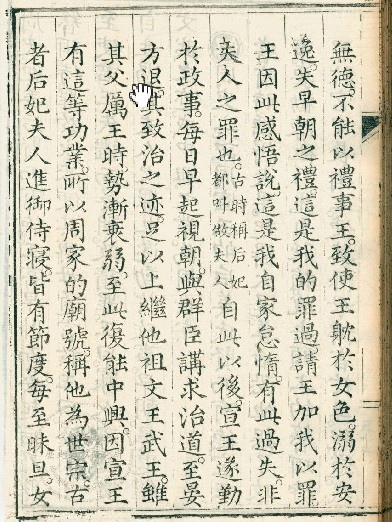 無德。不能以禮事王。致使王躭於女色。溺於安
逸。失早朝之禮。這是我的罪過。請王加我以罪
王因此感悟說。這是我自家怠惰。有此過失。非
夫人之罪也。古時稱后妃都叫做夫人自此以後。宣王遂勤
於政事。每日早起視朝。與群臣講求治道。至晏
方退。其致治之迹。足以上繼他祖文王武王。雖
其父厲王時。勢漸衰弱。至此復能中興。因宣王
有這等功業。所以周家的廟號。稱他為世宗。古
者后妃夫人進御侍寢。皆有節度。每至昧旦。女